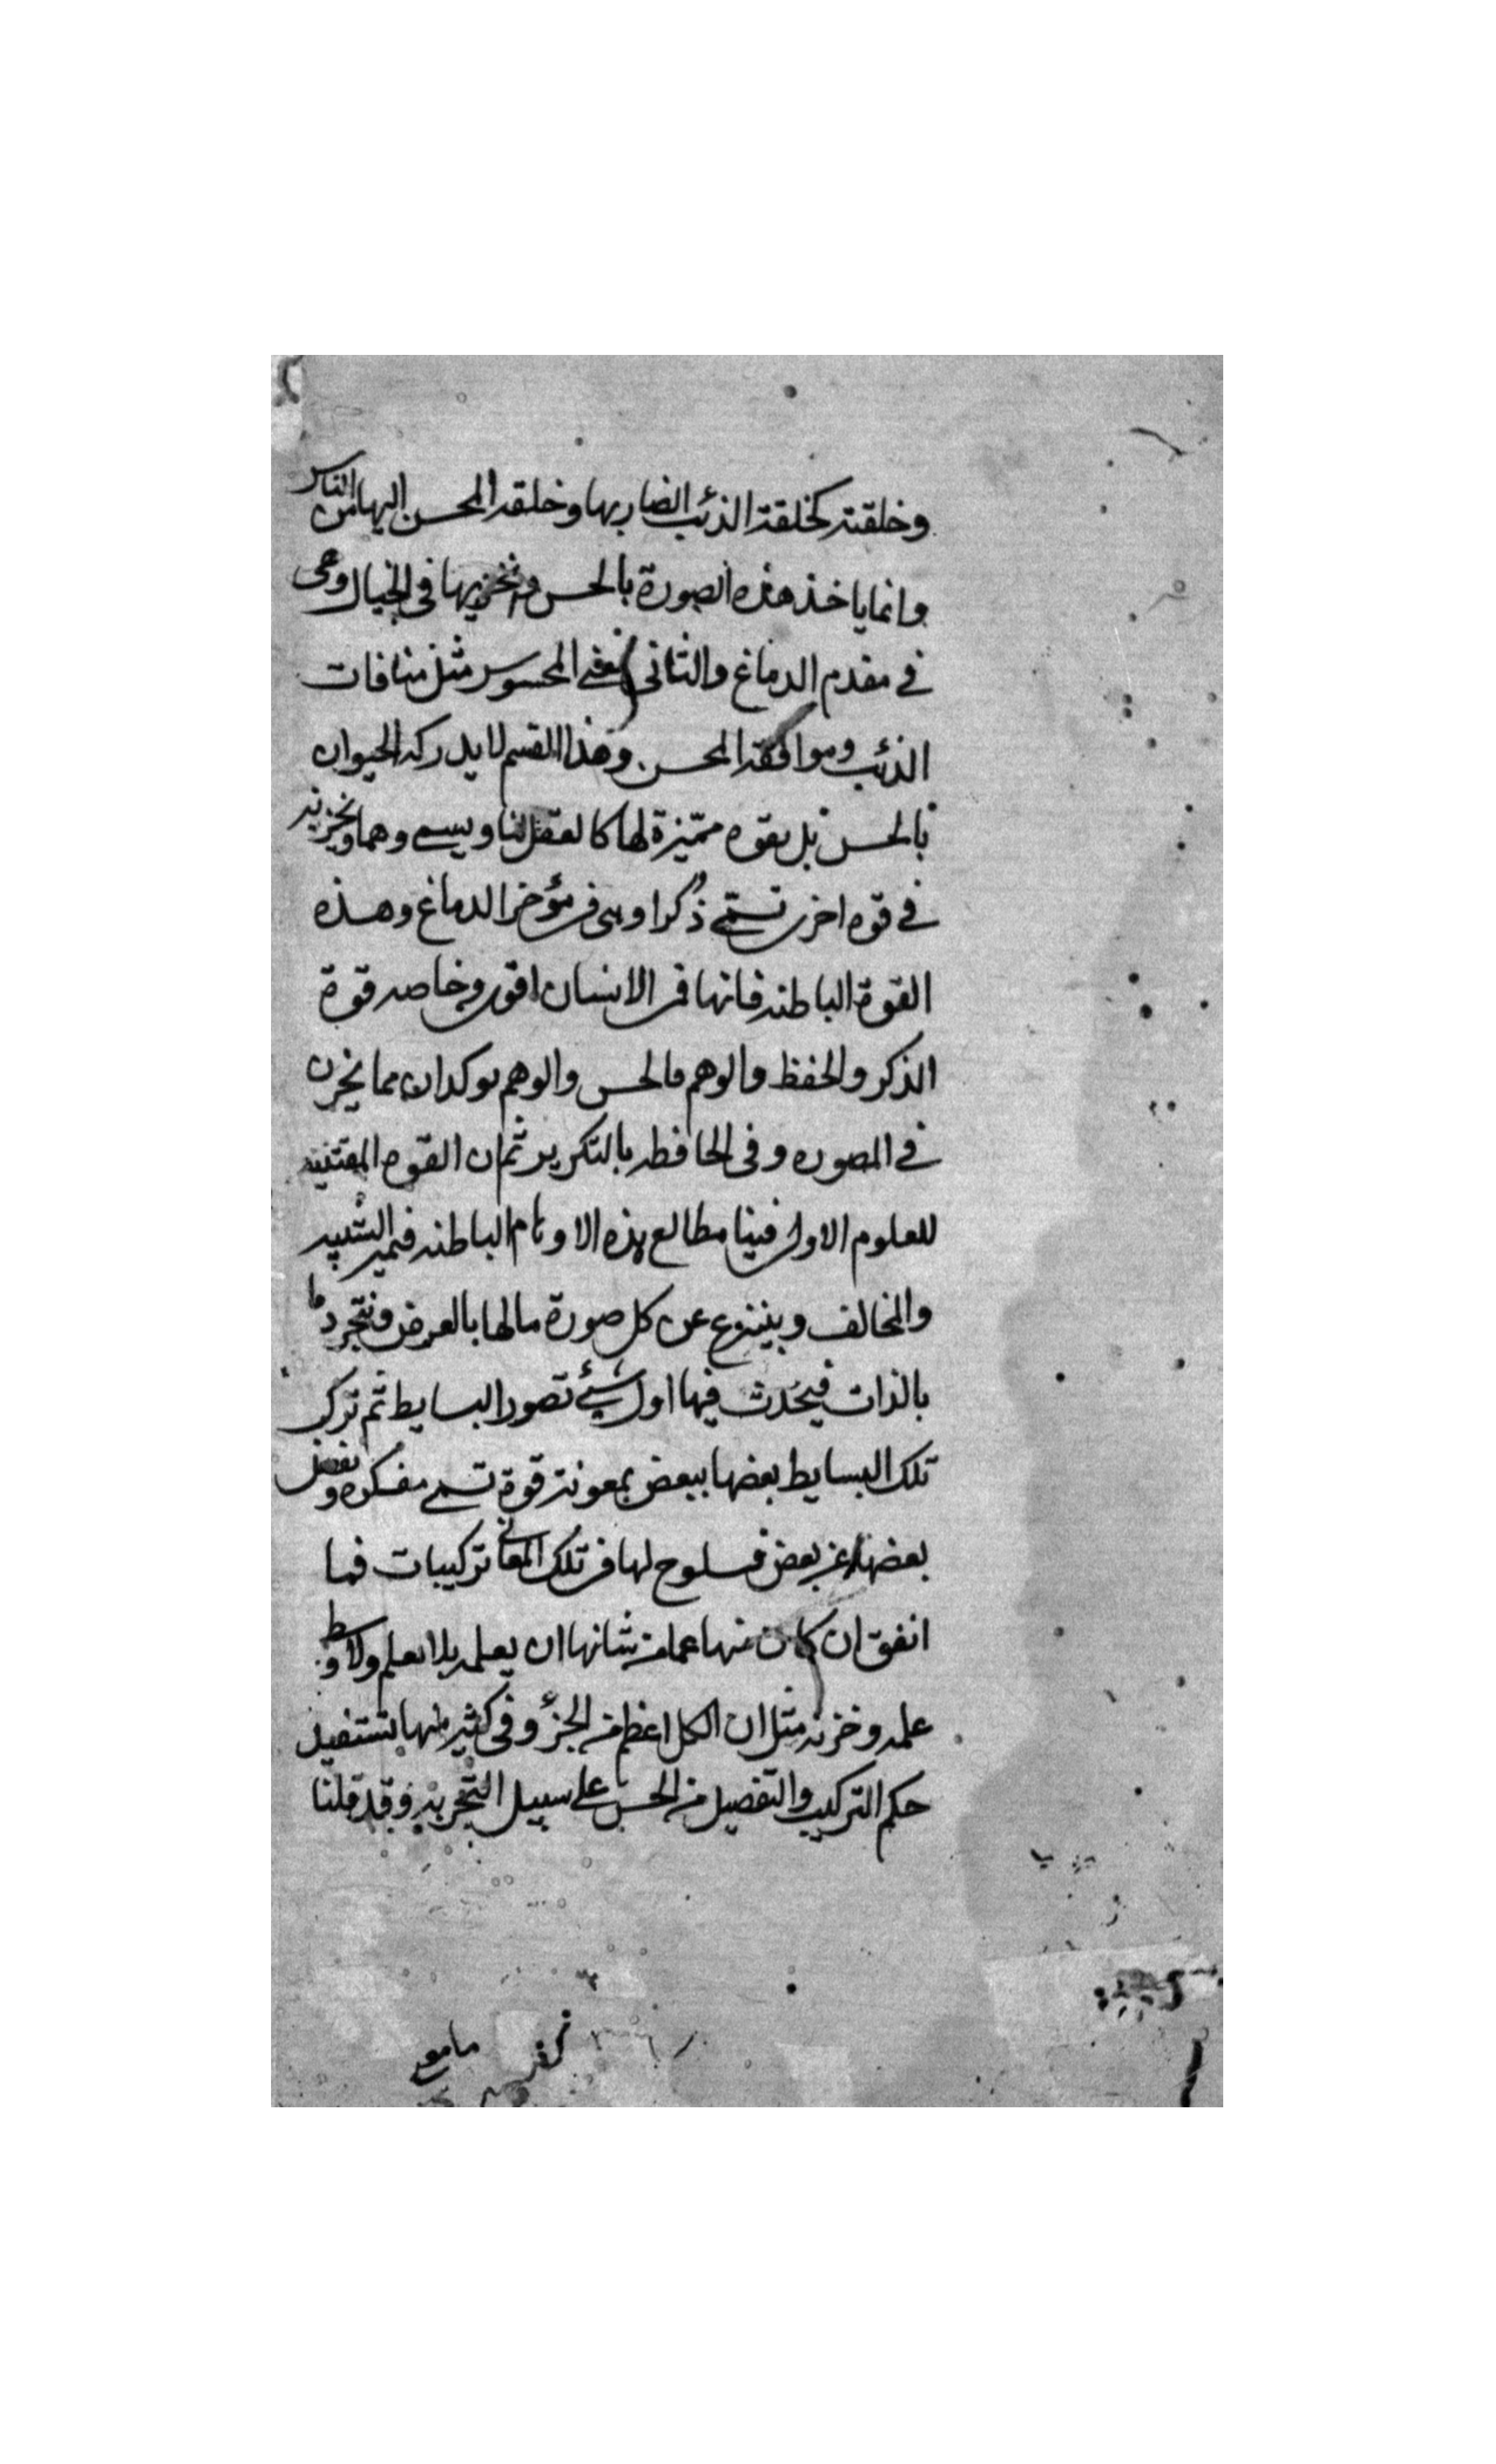 وخلقته كخلقة الذئب الضار بها وخلقة المحسن اليها من الناس
وانما ياخذ هذه الصورة بالحس و يخزنها فى الخيال وهى
في مقدم الدماغ والثانى معنى المحسوس مثل منافات
الذئب وموافقة المحسن وهذا القسم لا يدركه الحيوان
بالحس بل بقوه مميّزة لها كالعقل لنا ويسمى وهما ويخزنه
في قوه اخرى تسمّى ذكرا وهى فى مؤخر الدماغ وهذه
القوة الباطنه فانها فى الانسان اقوى وخاصه قوة
الذكر والحفظ والوهم فالحس والوهم يوكدان مما يخزن
في المصوره وفى الحافظه بالتكرير ثم ان القوه المقتنيه
للعلوم الاول فينا مطالع هذه الاوهام الباطنه فيميز الشبيه
والمخالف وينتزع عن كل صورة مالها بالعرض ونتجرد ما
بالذات فيحدث فيها اول شئ تصور البسايط ثم تركب
تلك البسايط بعضها ببعض بمعونة قوة تسمى مفكره وتفصل
بعضها عن بعض فيلوح لها فى تلك المعانى تركيبات فما
اتفق ان كان منها عما من شانها ان يعلمه بلا تعلم ولا وسط
علمه وخزنه مثل ان الكل اعظم من الجزؤ وفى كثير منها تستفيد
حكم التركيب والتفصيل من الحس على سبيل التجربه وقد قلنا